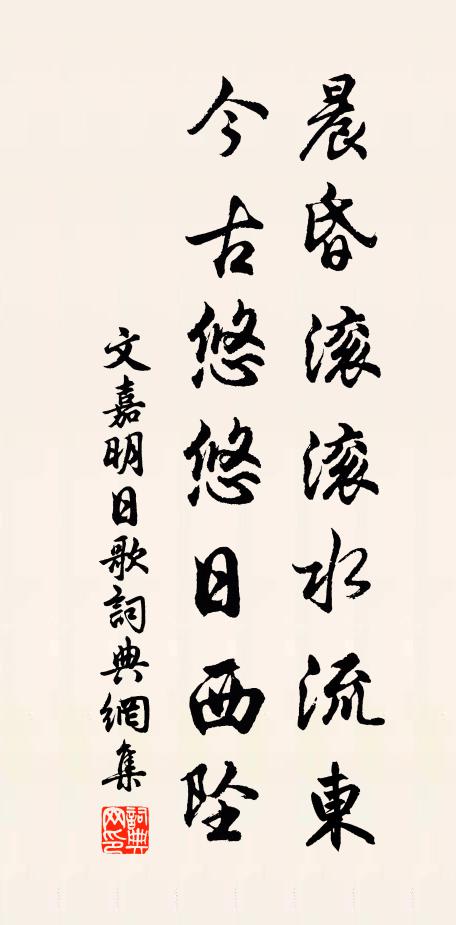 晨昏滚滚水流東
今古悠悠日西坠
文嘉明日歌詞典網集
詞典網印